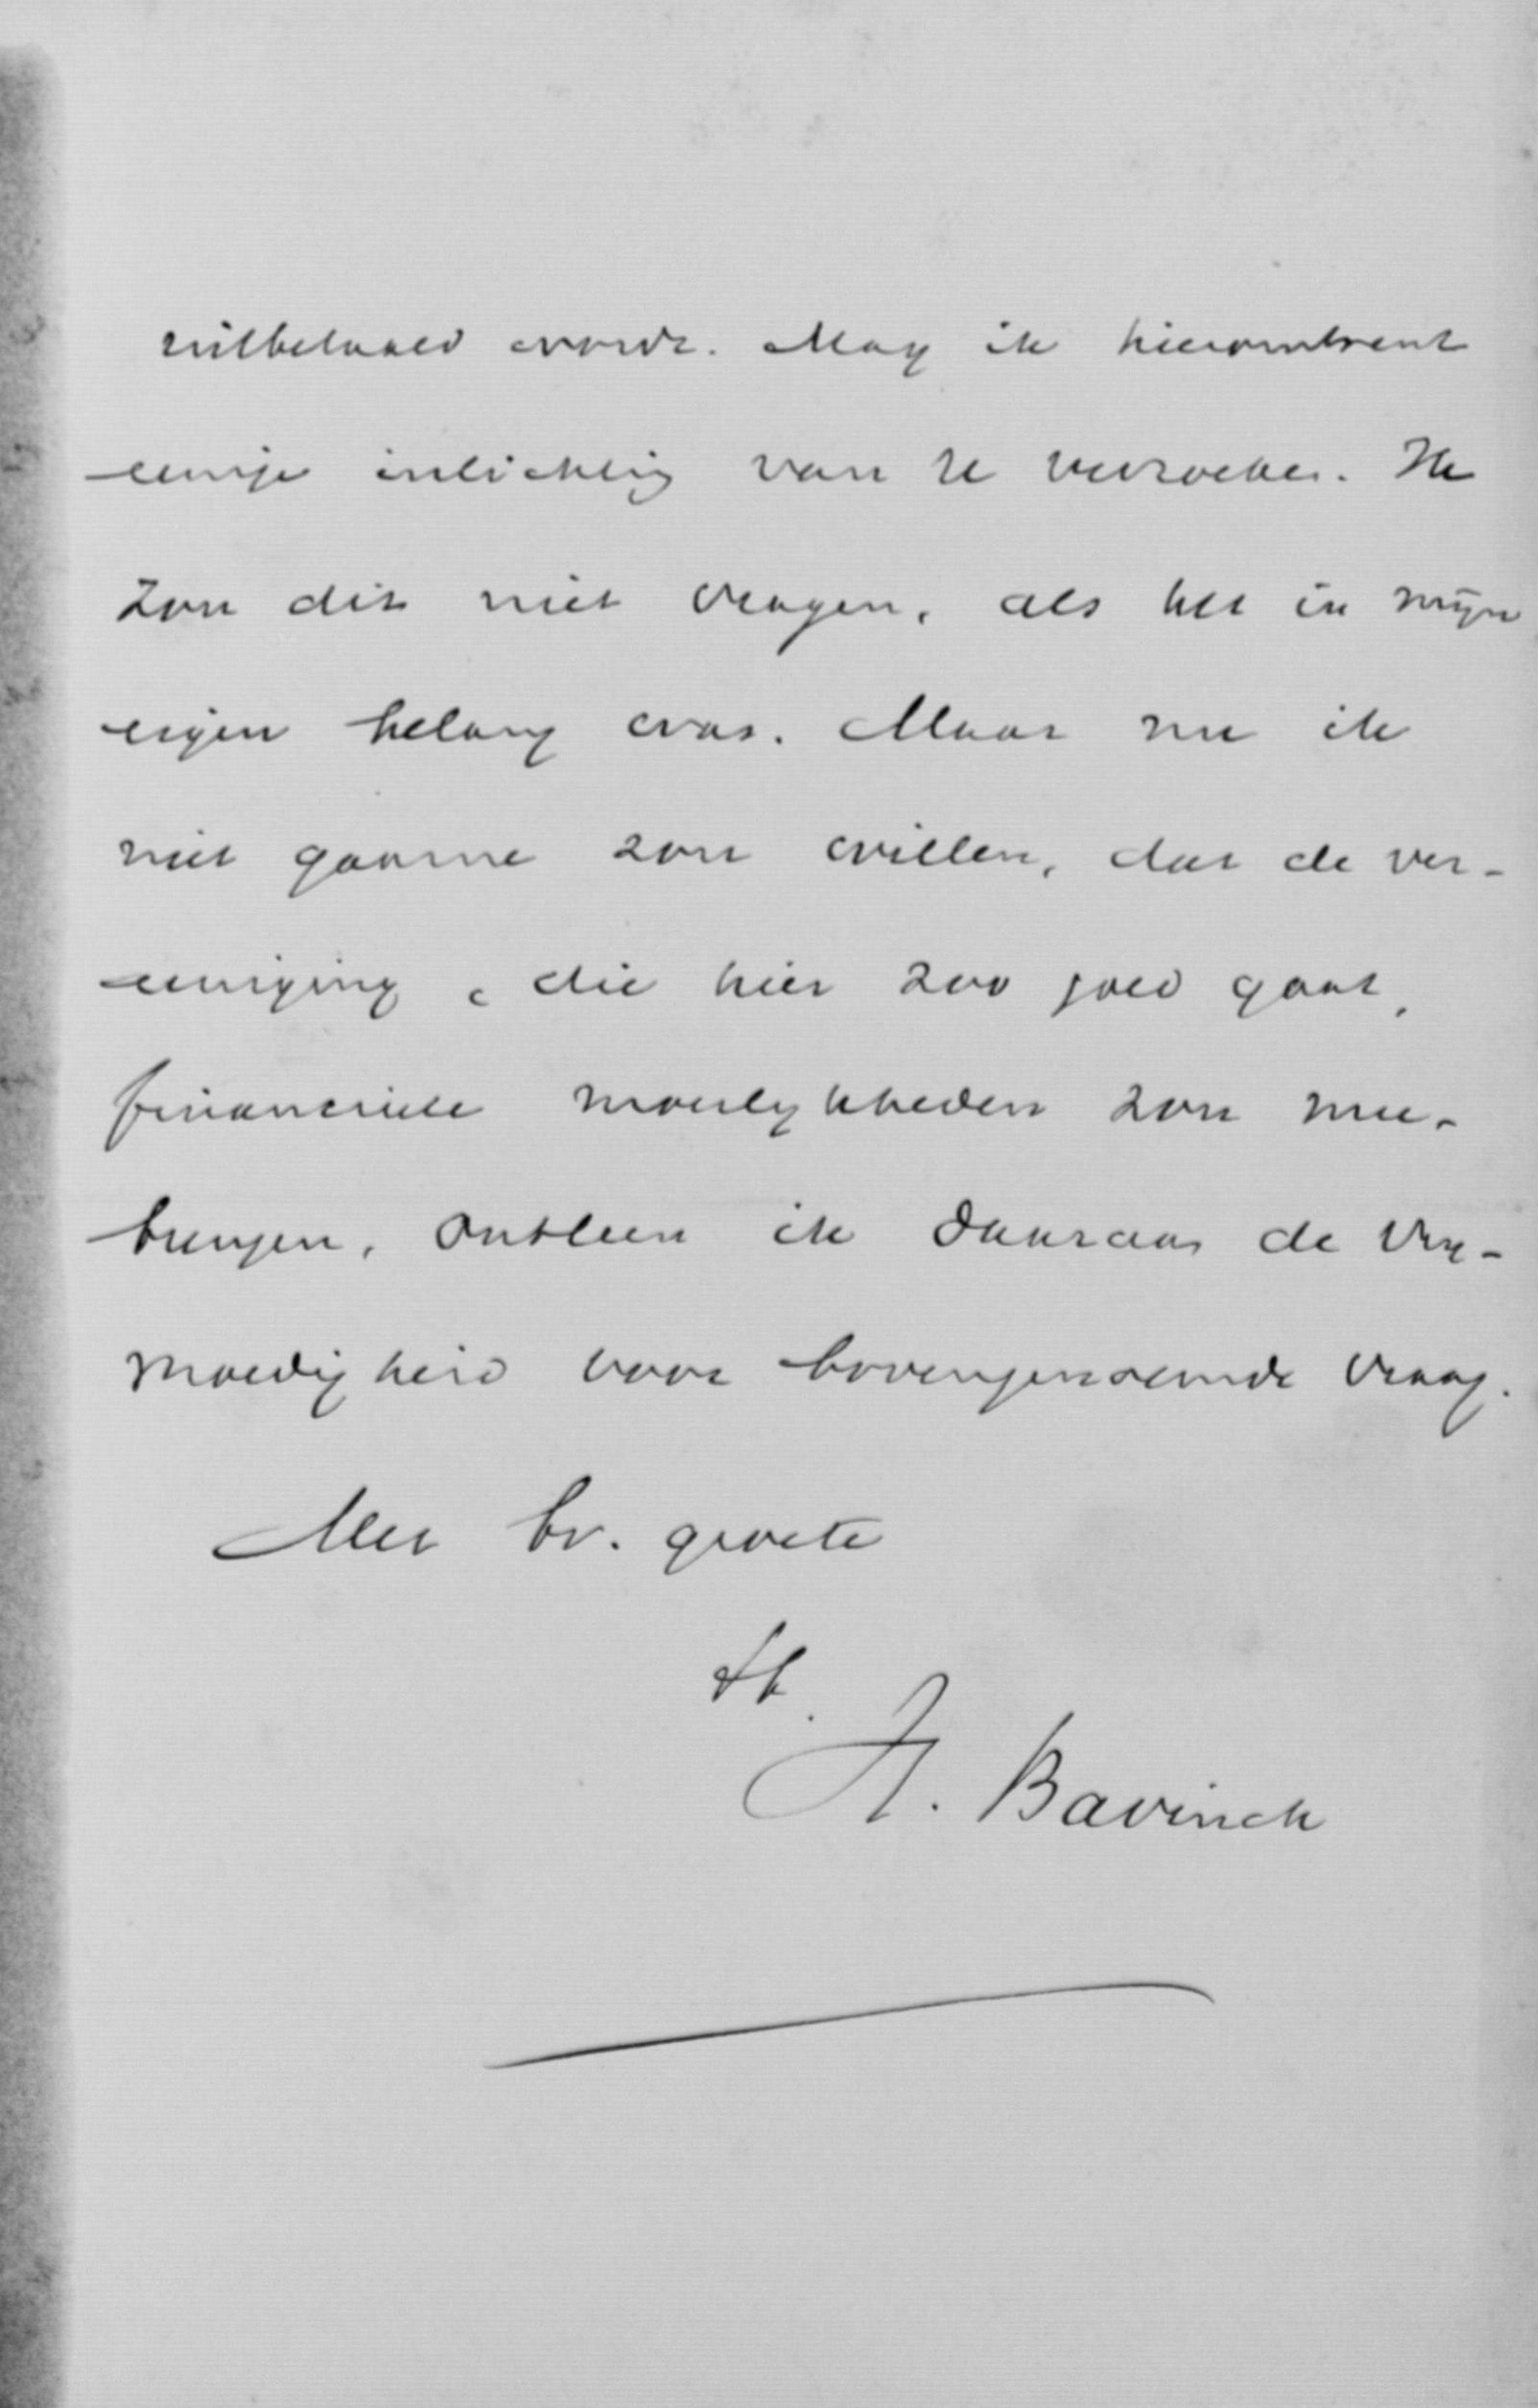 uitbetaald wordt. Mag ik hieromtrent
eenige inlichting van U verzoeken. Ik
zou dit niet vragen, als het in mijn
eigen belang was. Maar nu ik
niet gaarne zou willen, dat de ver-
eeniging, die hier zoo goed gaat,
financieele moeilykheden zou mee-
brengen, ontleen ik daaraan de vry-
moedigheid voor bovengenoemde vraag.
Met br. groete
H. Bavinck